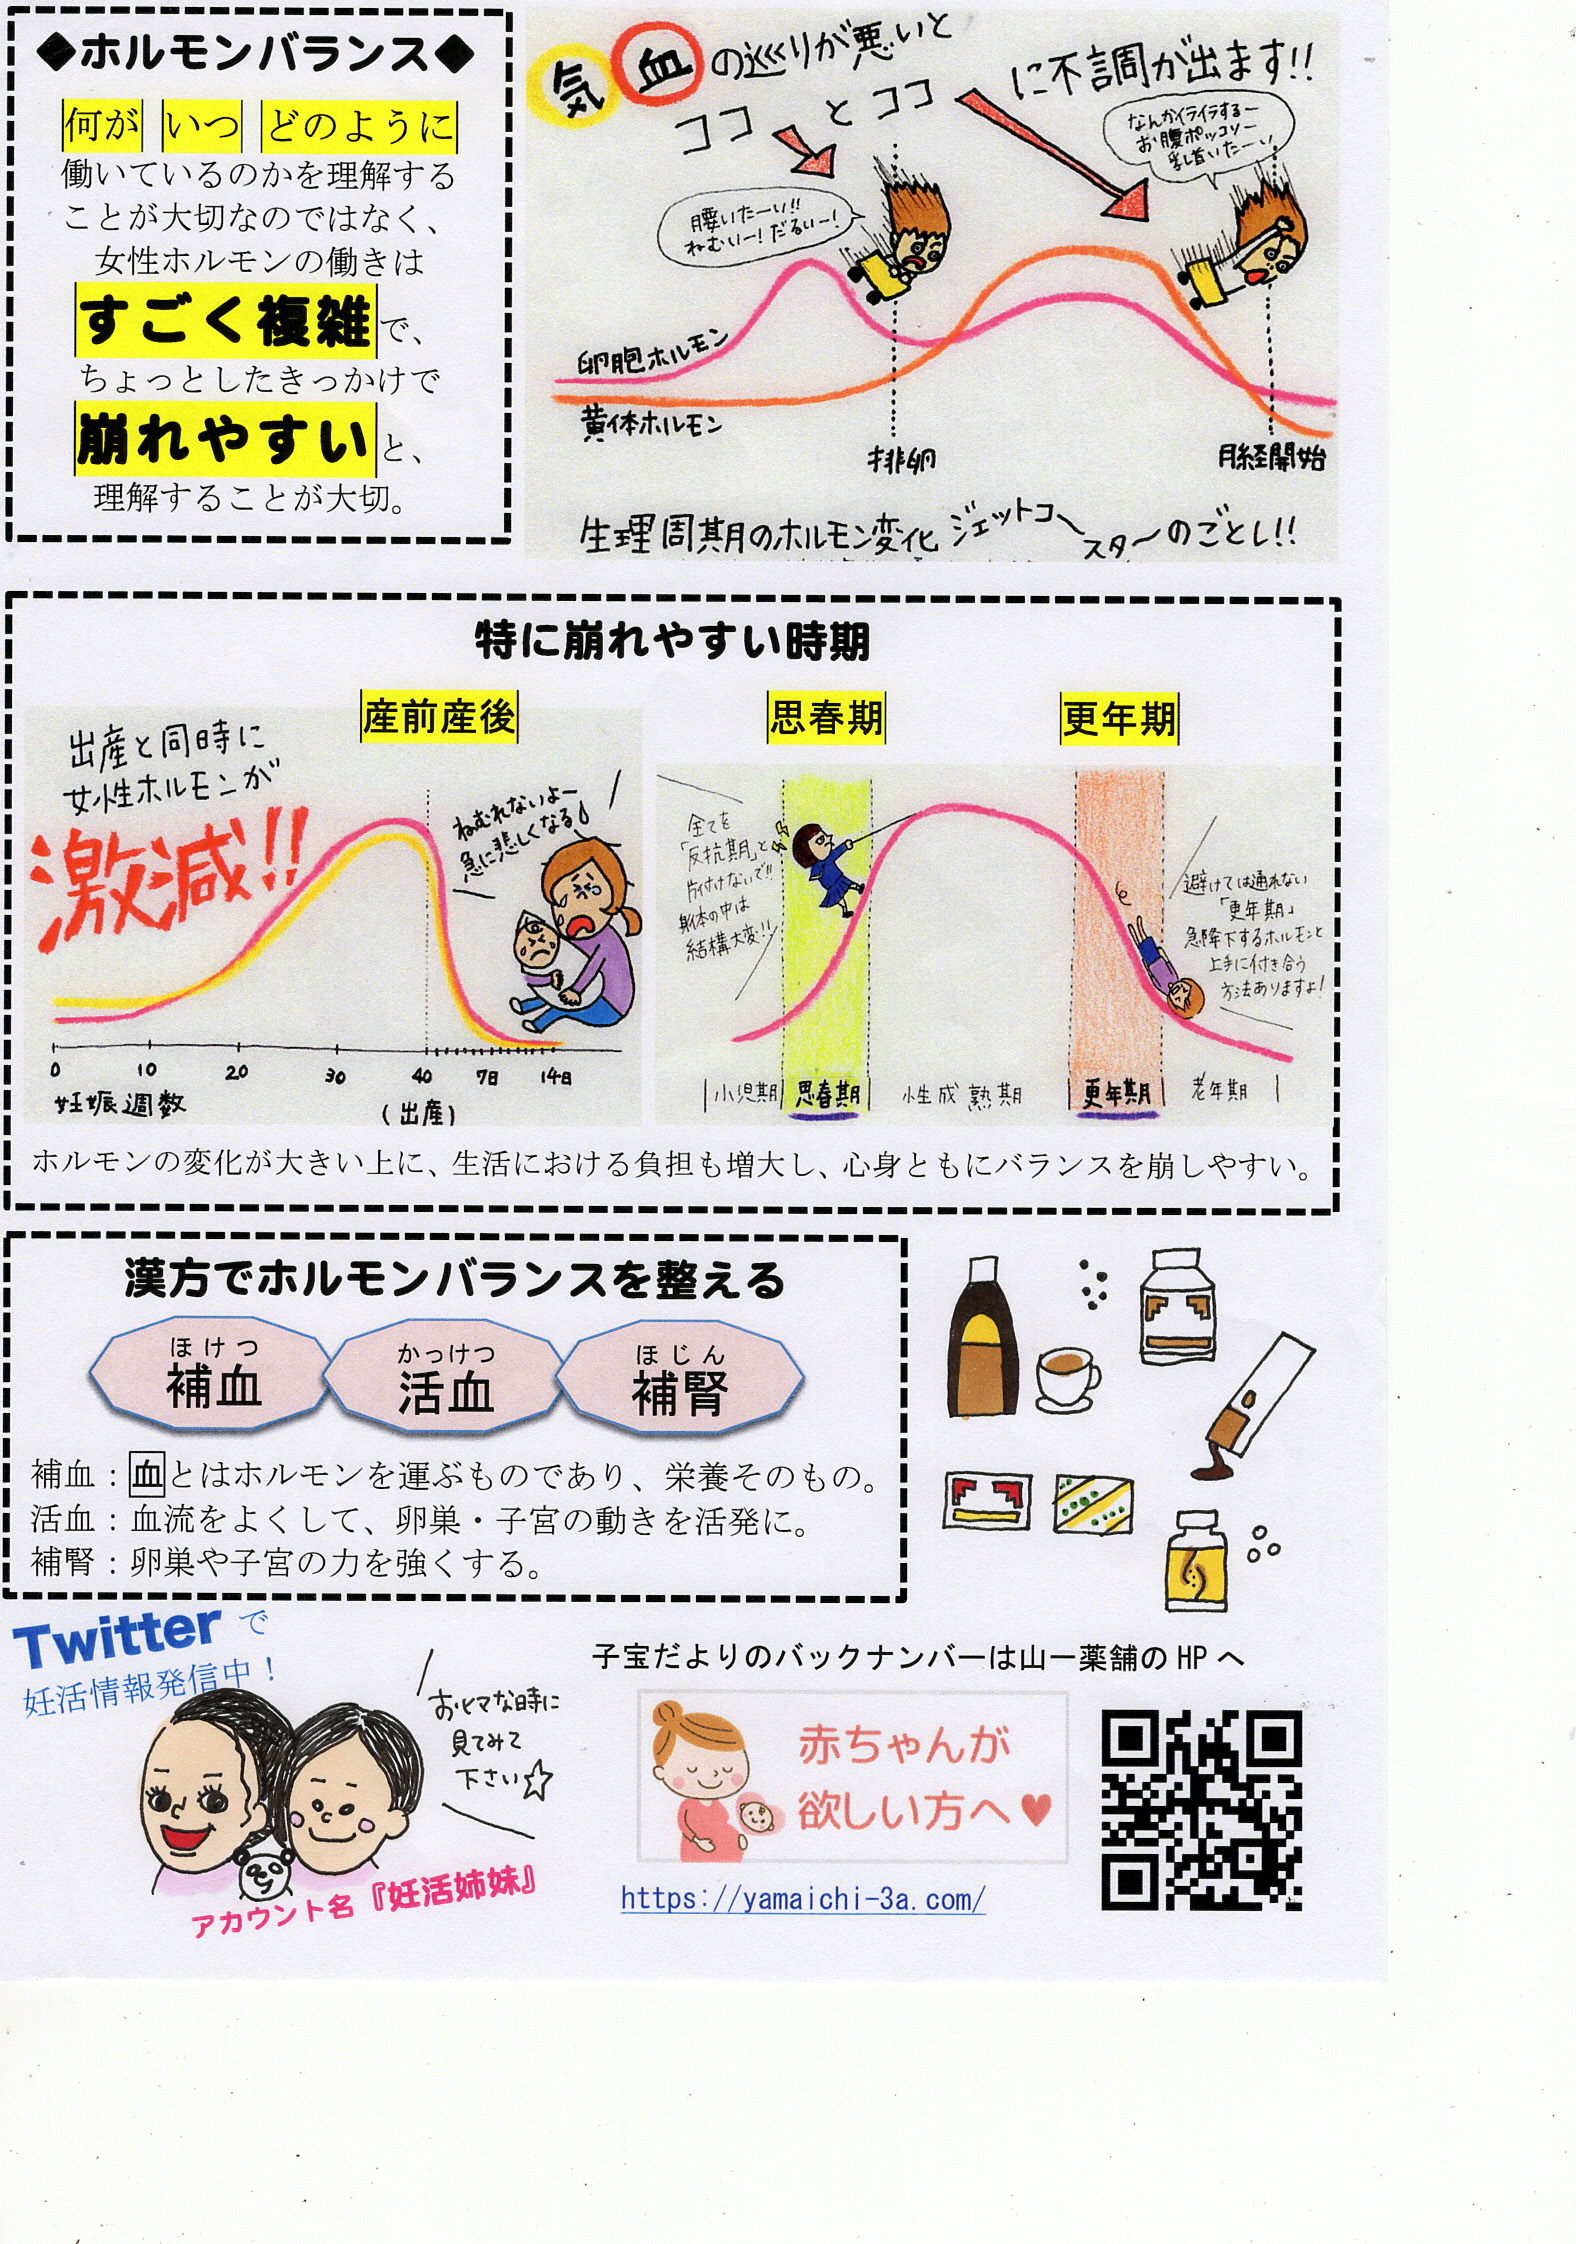 ◆ホルモンバランス◆
何が いつ どのように
働いているのかを理解する
ことが大切なのではなく、
女性ホルモンの働きは
すごく複雑で、
ちょっとしたきっかけで
崩れやすいと、
理解することが大切。
気 血の巡りが悪いと
ココとココに不調が出ます!!
腰いたーい!!
ねむいー!だるいー!
なんかイライラするー
お腹ポッコリー
乳首いたーい
卵胞ホルモン
黄体ホルモン
排卵
月経開始
生理周期のホルモン変化 ジェットコースターのごとし!!
特に崩れやすい時期
産前産後
思春期
更年期
出産と同時に
女性ホルモンが
激減!!
ねむれないよー
急に悲しくなる
0 10 20 30 40 7日 14日
妊娠週数
(出産)
全てを
「反抗期」と
片付けないで!!
身体の中は
結構大変!!
避けては通れない
「更年期」
急降下するホルモンと
上手に付き合う
方法ありますよ!
小児期 思春期 性成熟期 更年期 老年期
ホルモンの変化が大きい上に、生活における負担も増大し、心身ともにバランスを崩しやすい。
漢方でホルモンバランスを整える
ほけつ かっけつ ほじん
補血 活血 補腎
補血：血とはホルモンを運ぶものであり、栄養そのもの。
活血：血流をよくして、卵巣・子宮の動きを活発に。
補腎：卵巣や子宮の力を強くする。
Twitterで
妊活情報発信中！
おヒマな時に
見てみて
下さい☆
アカウント名『妊活姉妹』
子宝だよりのバックナンバーは山一薬舗のHPへ
赤ちゃんが
欲しい方へ♥
https://yamaichi-3a.com/